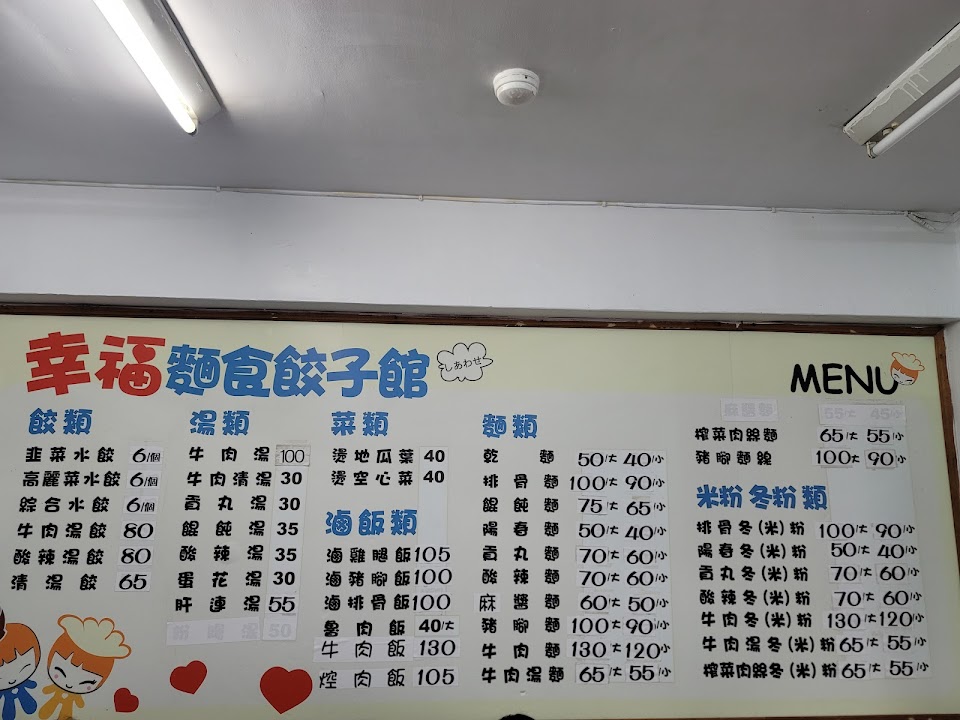 幸福麵食餃子館
しあわせ
MENU
餃類
韭菜水餃 6/個
高麗菜水餃 6/個
綜合水餃 6/個
牛肉湯餃 80
酸辣湯餃 80
清湯餃 65
湯類
牛肉湯 100
牛肉清湯 30
貢丸湯 30
餛飩湯 35
酸辣湯 35
蛋花湯 30
肝連湯 55
菜類
燙地瓜葉 40
燙空心菜 40
滷飯類
滷雞腿飯 105
滷豬腳飯 100
滷排骨飯 100
魯肉飯 40/大
牛肉飯 130
焢肉飯 105
麵類
乾麵 50/大 40/小
排骨麵 100/大 90/小
餛飩麵 75/大 65/小
陽春麵 50/大 40/小
貢丸麵 70/大 60/小
酸辣麵 70/大 60/小
麻醬麵 60/大 50/小
豬腳麵 100/大 90/小
牛肉麵 130/大 120/小
牛肉湯麵 65/大 55/小
55/大 45/小
榨菜肉絲麵 65/大 55/小
豬腳麵線 100/大 90/小
米粉冬粉類
排骨冬(米)粉 100/大 90/小
陽春冬(米)粉 50/大 40/小
貢丸冬(米)粉 70/大 60/小
酸辣冬(米)粉 70/大 60/小
牛肉冬(米)粉 130/大 120/小
牛肉湯冬(米)粉 65/大 55/小
榨菜肉絲冬(米)粉 65/大 55/小